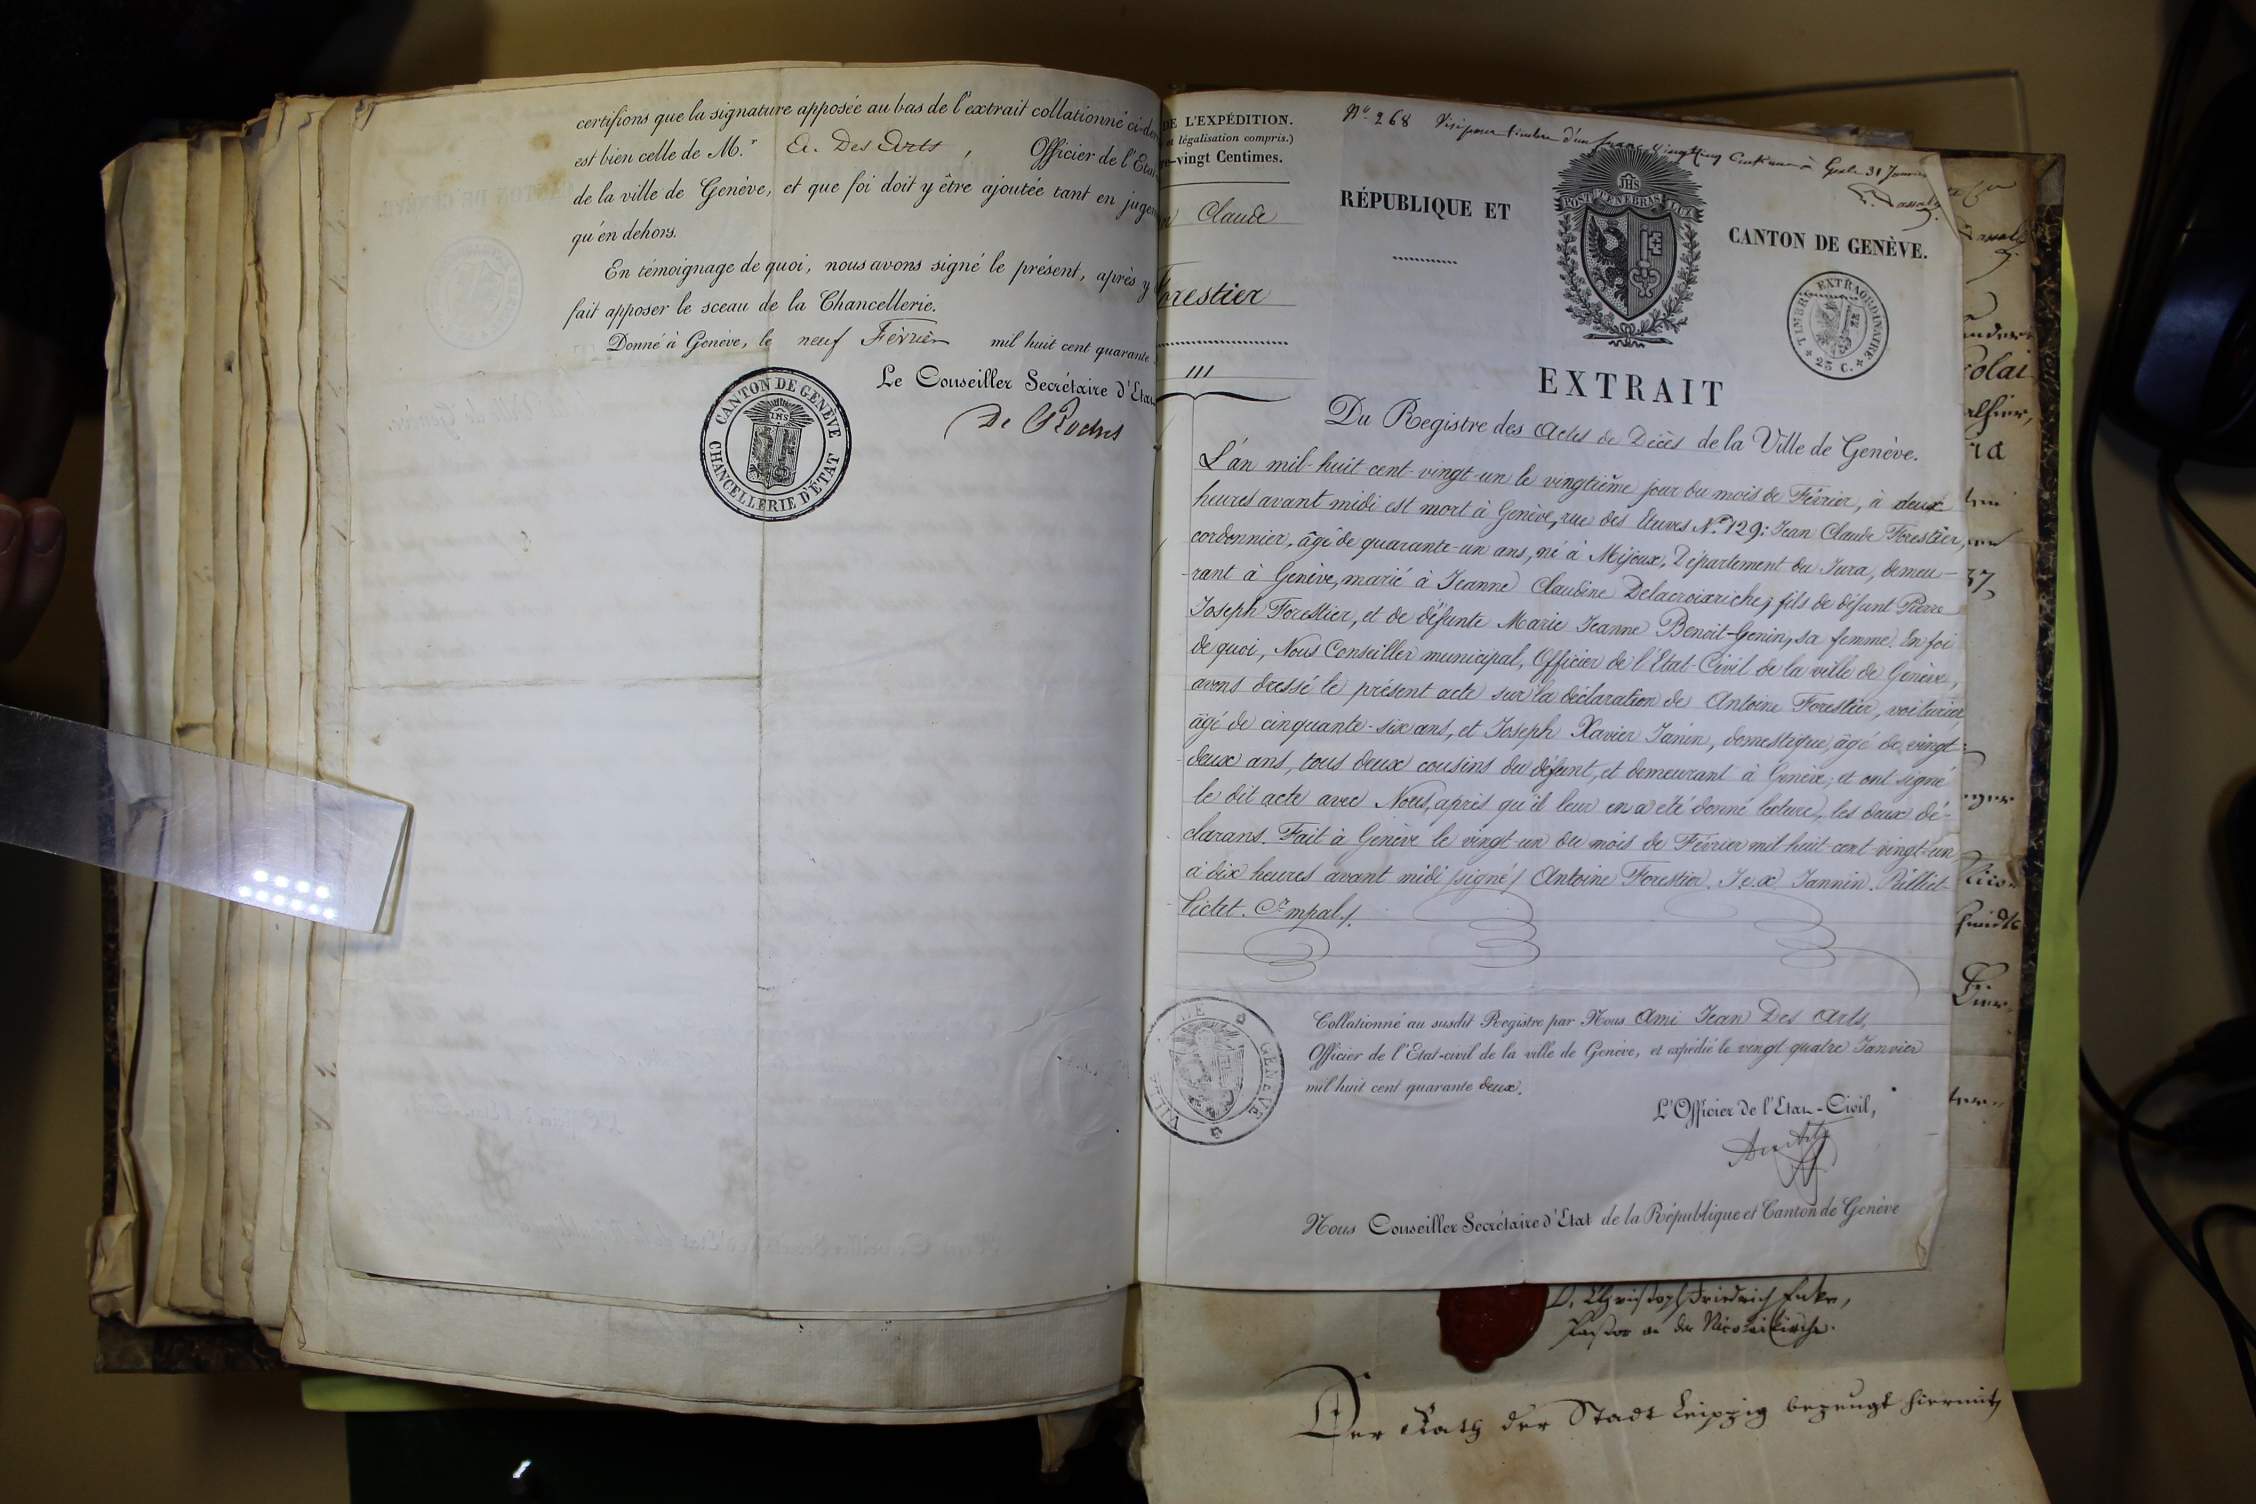 certifions que la signature apposée au bas de l'extrait collationné ci-de
est bien celle de M.r A. Des Arts, Officier de l'Etat
de la ville de Genève, et que foi doit y être ajoutée tant en juge
qu'en dehors.
En témoignage de quoi, nous avons signé le présent, après y
fait apposer le sceau de la Chancellerie.
Donné à Genève, le neuf Février mil huit cent quarante
Le Conseiller Secrétaire d'Etat
De Roches
CANTON DE GENÈVE
CHANCELLERIE D'ÉTAT
DE L'EXPÉDITION.
et légalisation compris.)
re-vingt Centimes.
Claude
Forestier
111
No. 268 Visé pour timbre d'un franc vingt cinq Centimes à 31 Janvier
RÉPUBLIQUE ET
CANTON DE GENÈVE.
JHS
POST TENEBRAS LUX
TIMBRE EXTRAORDINAIRE
25 C.
EXTRAIT
Du Registre des Actes de Décès de la Ville de Genève.
L'an mil-huit cent-vingt-un le vingtième jour du mois de Février, à deux
heures avant midi est mort à Genève, rue des Etuves No. 129: Jean Claude Forestier,
cordonnier, âgé de quarante-un ans, né à Mijoux, Département du Jura, demeu-
-rant à Genève, marié à Jeanne Claudine Delacroixriche; fils de défunt Pierre
Joseph Forestier, et de défunte Marie Jeanne Benoit-Genin, sa femme. En foi
de quoi, Nous Conseiller municipal, Officier de l'Etat-Civil de la ville de Genève,
avons dressé le présent acte sur la déclaration de Antoine Forestier, voiturier,
âgé de cinquante-six ans, et Joseph Xavier Janin, domestique, âgé de vingt-
deux ans, tous deux cousins du défunt, et demeurant à Genève; et ont signé
le dit acte avec Nous, après qu'il leur en a été donné lecture, les deux dé-
clarans. Fait à Genève le vingt-un du mois de Février mil huit-cent-vingt-un
à dix heures avant midi (signé) Antoine Forestier. J. x. Jannin. Rilliet-
Pictet. Cr mpal./.
VILLE DE GENÈVE
Collationné au susdit Registre par Nous Ami Jean Des Arts,
Officier de l'Etat-civil de la ville de Genève, et expédié le vingt quatre Janvier
mil huit cent quarante deux.
L'Officier de l'Etat-Civil,
Nous Conseiller Secrétaire d'Etat de la République et Canton de Genève
D. Christoph Friedrich Enke,
Pastor an der Nicolaikirche.
Der Rath der Stadt Leipzig bezeugt hiermit,